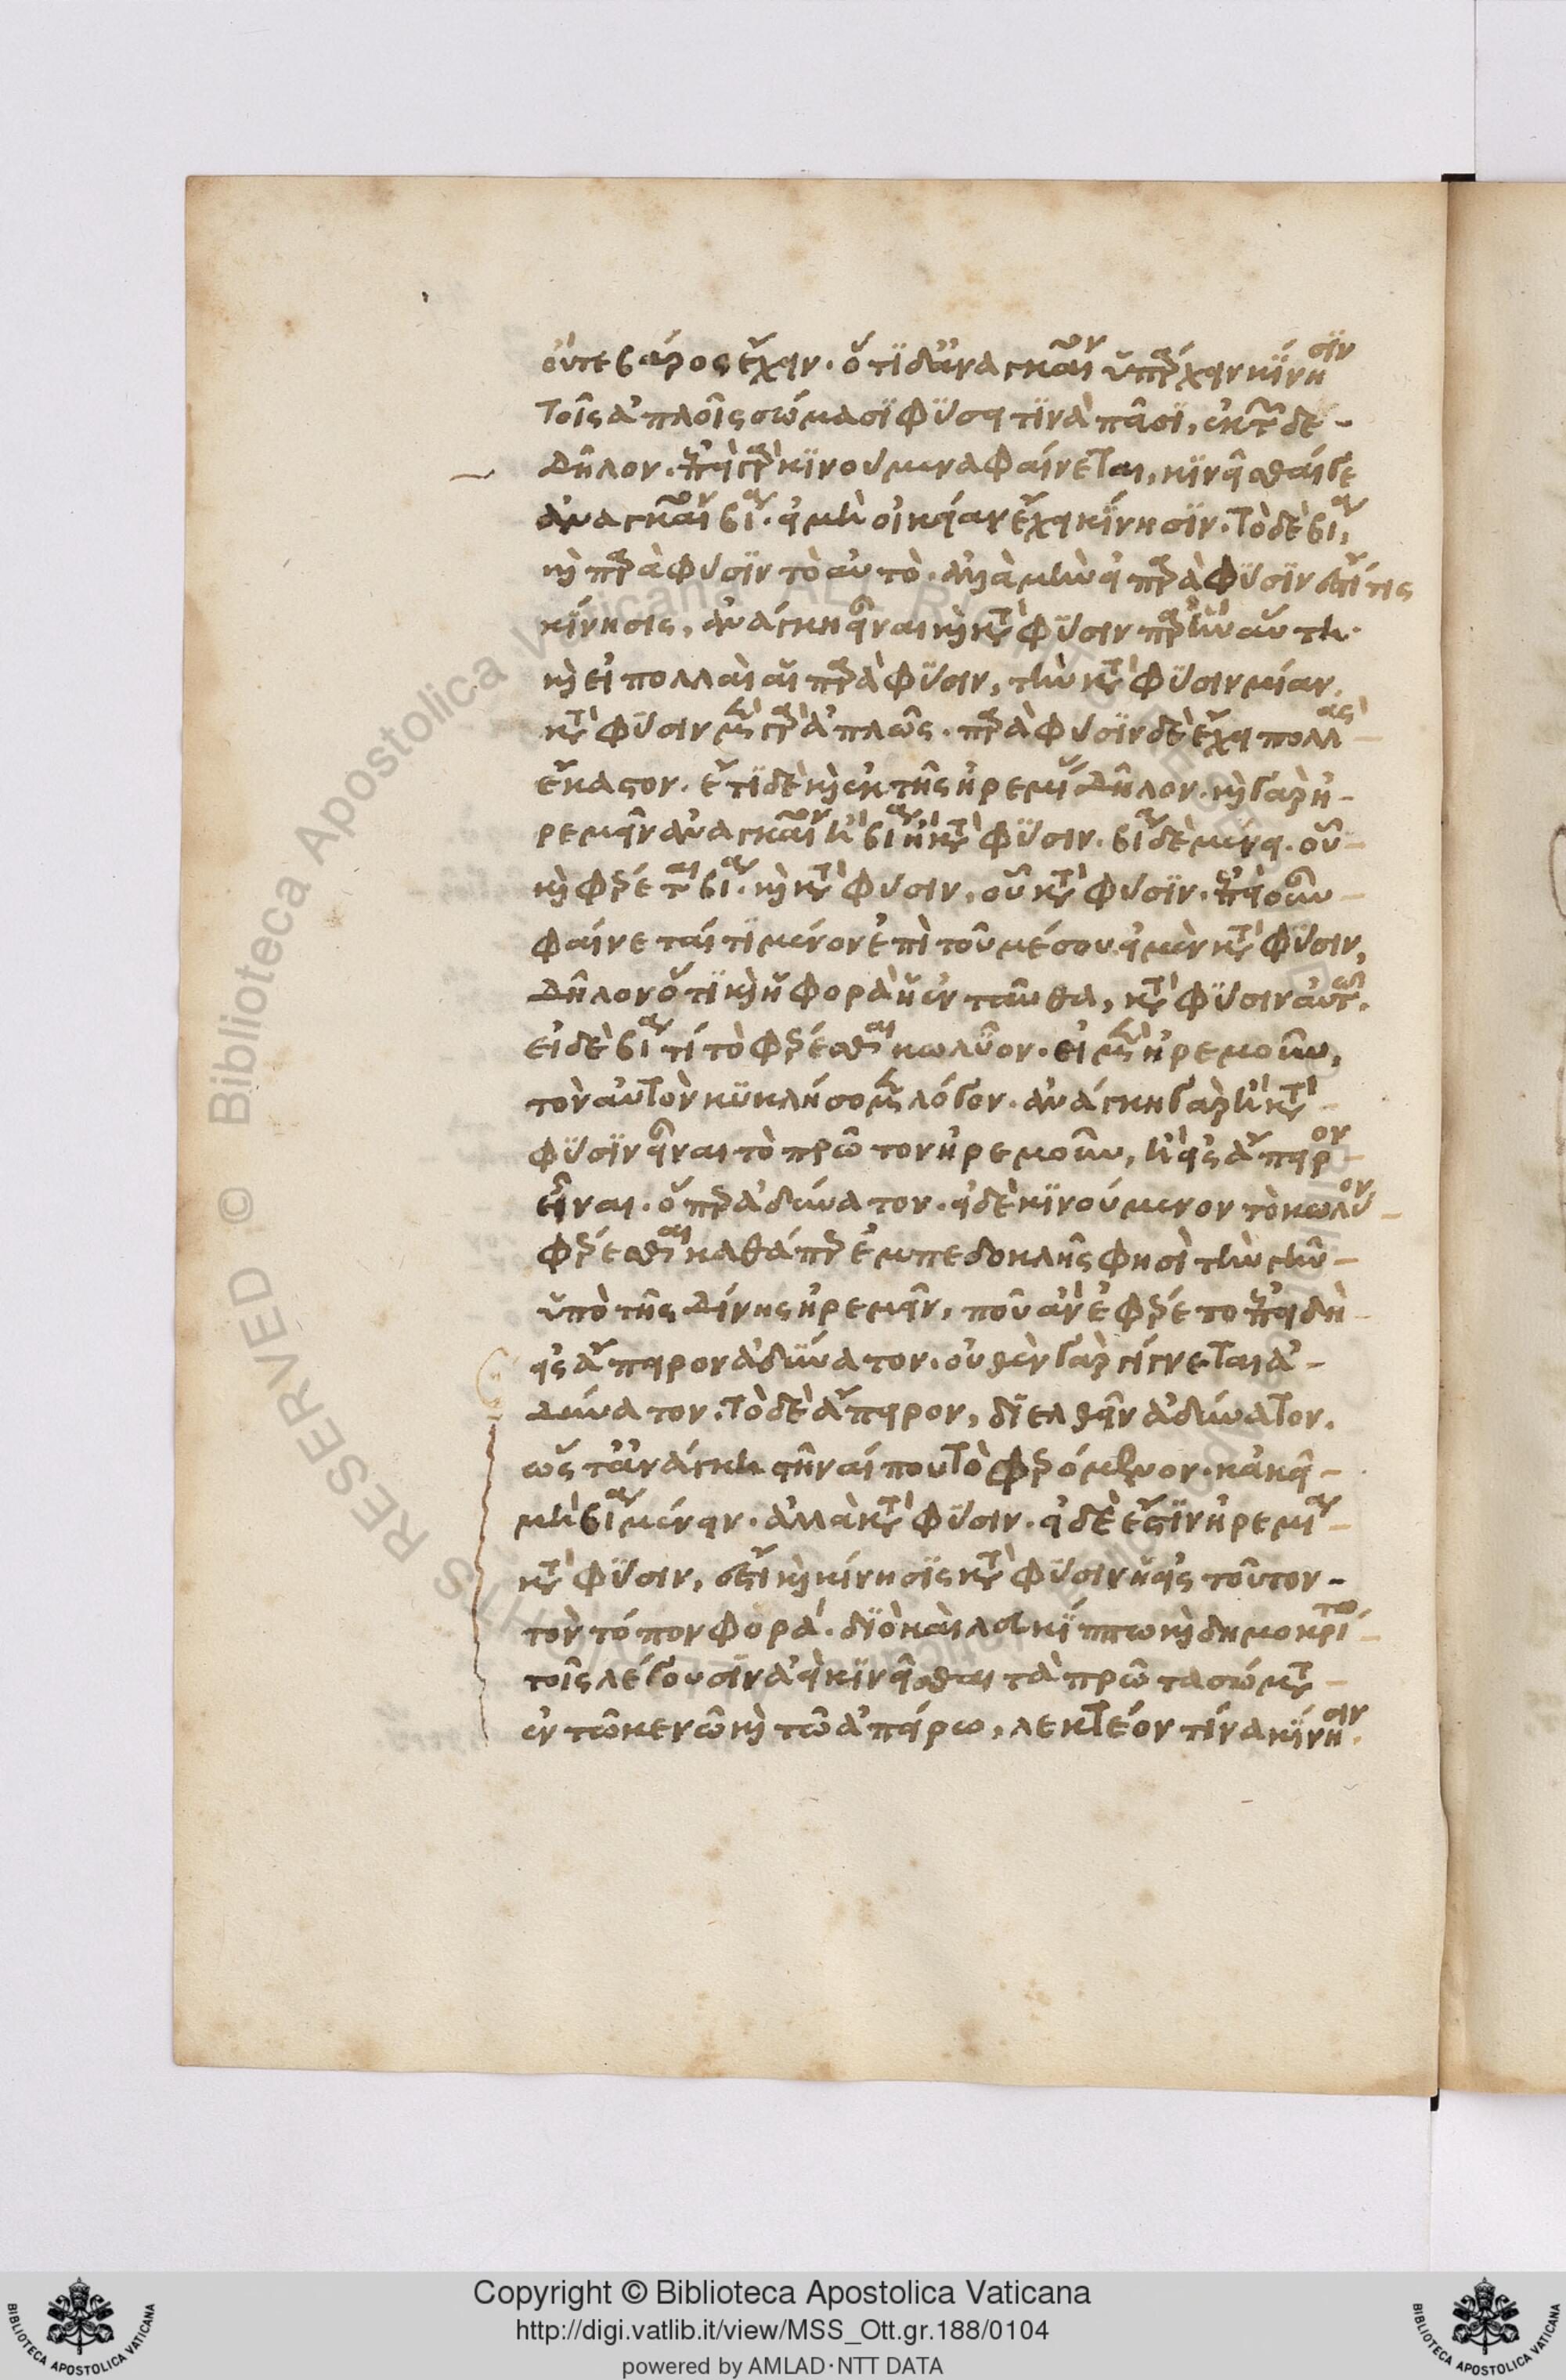 οὔτε βάρος ἔχειν. ὅτι δ' ἀναγκαῖον ὑπάρχειν κίνησιν
τοῖς ἁπλοῖς σώμασι φύσει τινὰ πᾶσιν, ἐκ τῶνδε
δῆλον. ἐπεὶ γὰρ κινούμενα φαίνεται, κινεῖσθαί γε
ἀναγκαῖον βίᾳ. εἰ μὴ οἰκείαν ἔχει κίνησιν. τὸ δὲ βίᾳ,
καὶ παρὰ φύσιν τὸ αὐτό. ἀλλὰ μὴν εἰ παρὰ φύσιν ἐστί τις
κίνησις, ἀνάγκη εἶναι καὶ κατὰ φύσιν παρ' ἣν αὕτη.
καὶ εἰ πολλαὶ αἱ παρὰ φύσιν, τὴν κατὰ φύσιν μίαν.
κατὰ φύσιν μὲν γὰρ ἁπλῶς. παρὰ φύσιν δὲ ἔχει πολλὰς
ἕκαστον. ἔτι δὲ καὶ ἐκ τῆς ἠρεμίας δῆλον. καὶ γὰρ ἠ-
ρεμεῖν ἀναγκαῖον ἢ βίᾳ ἢ κατὰ φύσιν. βίᾳ δὲ μένει. οὗ
καὶ φέρεται βίᾳ. καὶ κατὰ φύσιν, οὗ κατὰ φύσιν. ἐπεὶ οὖν
φαίνεταί τι μένον ἐπὶ τοῦ μέσου εἰ μὲν κατὰ φύσιν,
δῆλον ὅτι καὶ ἡ φορὰ ἡ ἐνταῦθα, κατὰ φύσιν αὐτῷ.
εἰ δὲ βίᾳ τί τὸ φέρεσθαι κωλῦον. εἰ μὲν ἠρεμοῦν,
τὸν αὐτὸν κυκλήσομεν λόγον. ἀνάγκη γὰρ ἢ κατὰ
φύσιν εἶναι τὸ πρῶτον ἠρεμοῦν, ἢ εἰς ἄπειρον
εἶναι. ὅπερ ἀδύνατον. εἰ δὲ κινούμενον τὸ κωλῦον
φέρεσθαι καθάπερ ἐμπεδοκλῆς φησὶ τὴν γῆν
ὑπὸ τῆς δίνης ἠρεμεῖν, ποῦ ἂν ἐφέρετο ἐπειδὴ
εἰς ἄπειρον ἀδύνατον. οὐθὲν γὰρ γίγνεται ἀ-
δύνατον. τὸ δὲ ἄπειρον, διελθεῖν ἀδύνατον.
ὥστ' ἀνάγκη στῆναί που τὸ φερόμενον. κἀκεῖ
μὴ βίᾳ μένειν. ἀλλὰ κατὰ φύσιν. εἰ δὲ ἔστιν ἠρεμία
κατὰ φύσιν, ἔστι καὶ κίνησις κατὰ φύσιν ἡ εἰς τοῦτον
τὸν τόπον φορά. διὸ καὶ λευκίππῳ καὶ δημοκρίτῳ
τοῖς λέγουσιν ἀεὶ κινεῖσθαι τὰ πρῶτα σώματα
ἐν τῷ κενῷ καὶ τῷ ἀπείρῳ, λεκτέον τίνα κίνησιν.
Copyright © Biblioteca Apostolica Vaticana
http://digi.vatlib.it/view/MSS_Ott.gr.188/0104
powered by AMLAD·NTT DATA